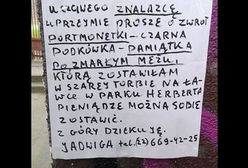 UCZCIWEGO ZNALAZCĘ
UPRZEJMIE PROSZĘ O ZWROT
PORTMONETKI-CZARNA
PODKÓWKA-PAMIĄTKA
PO ZMARŁYM MĘŻU,
KTÓRĄ ZOSTAWIŁAM
W SZAREJ TORBIE NA ŁA-
WCE W PARKU HERBERTA
PIENIĄDZE MOŻNA SOBIE
ZOSTAWIĆ.
Z GÓRY DZIĘKUJĘ.
JADWIGA tel.(12) 669-42-25